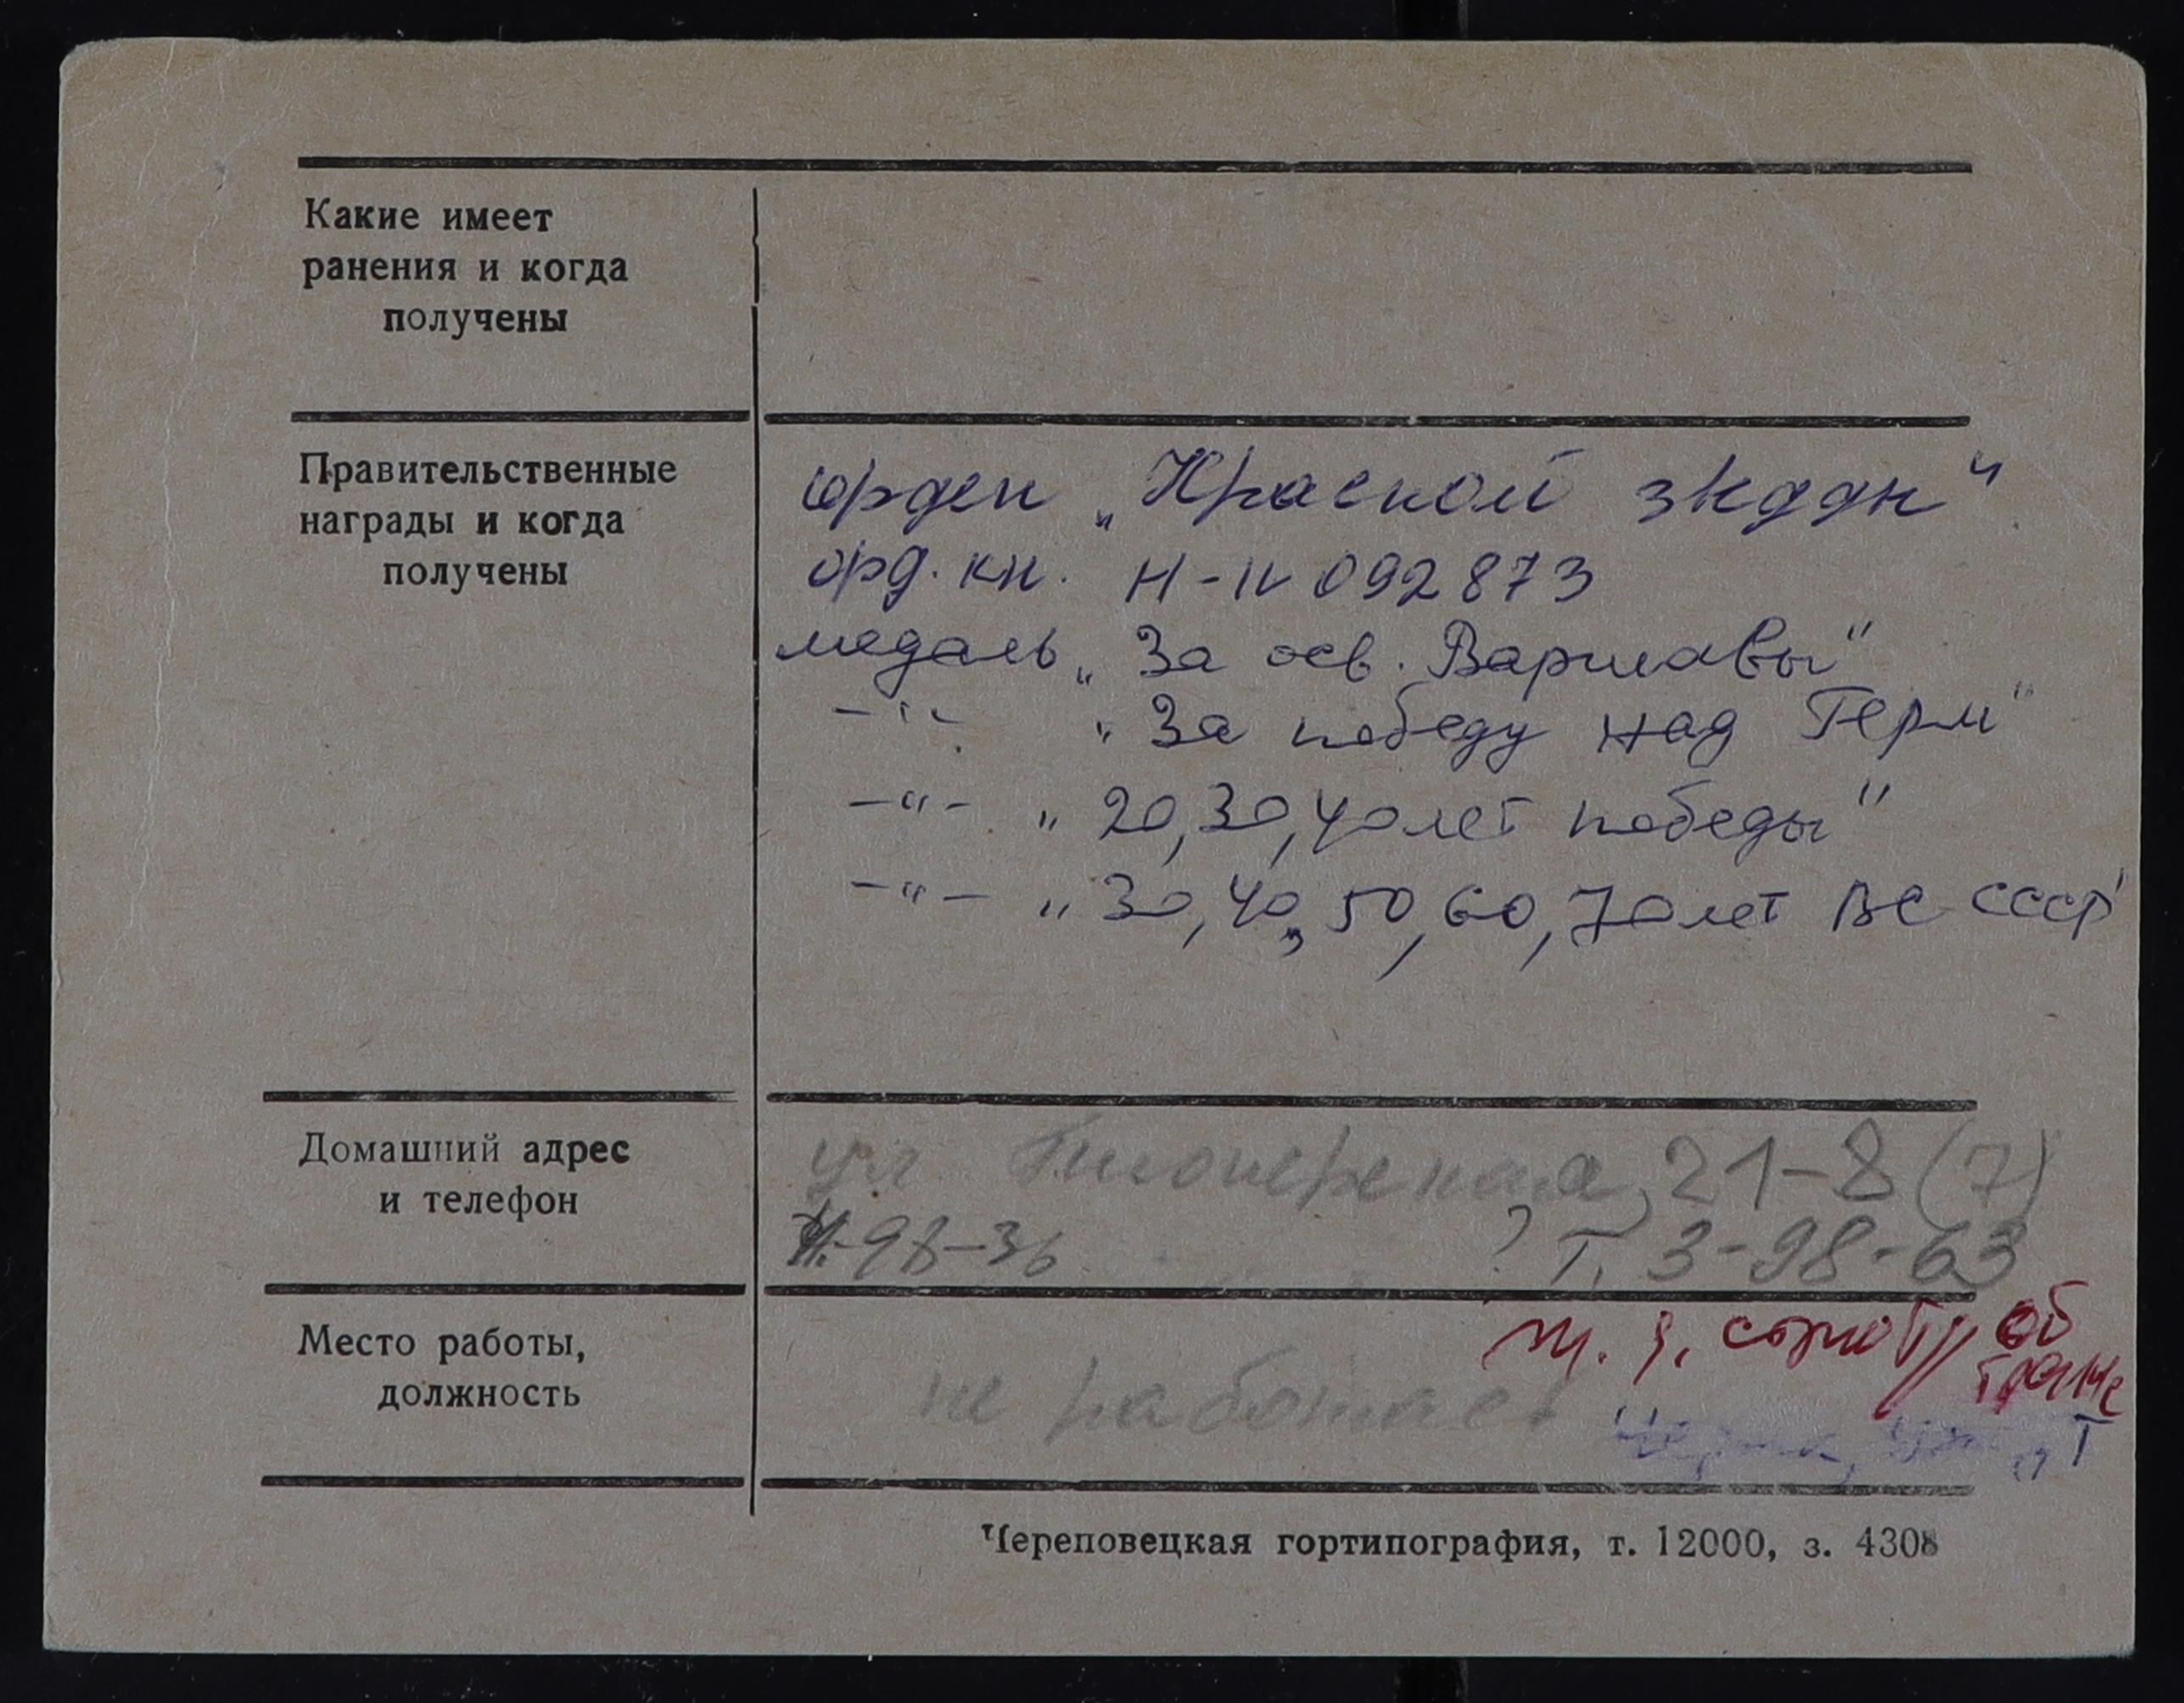 Какие имеет
ранения и когда
получены
Правительственные
награды и когда
получены
орден „Красной зкддн"
орд. кн. Н-IV 092873
медаль „За осв. Варшавы"
-"- „За победу над Герм"
-"- „20,30,40 лет победы"
-"- „30,40, 50,60,70 лет ВС СССР"
Домашний адрес
и телефон
ул Пионерская, 21-8 (7)
98-36 ? Т. 3-98-63
Место работы,
должность
не работает
Череповецкая гортипография, т. 12000, з. 4308